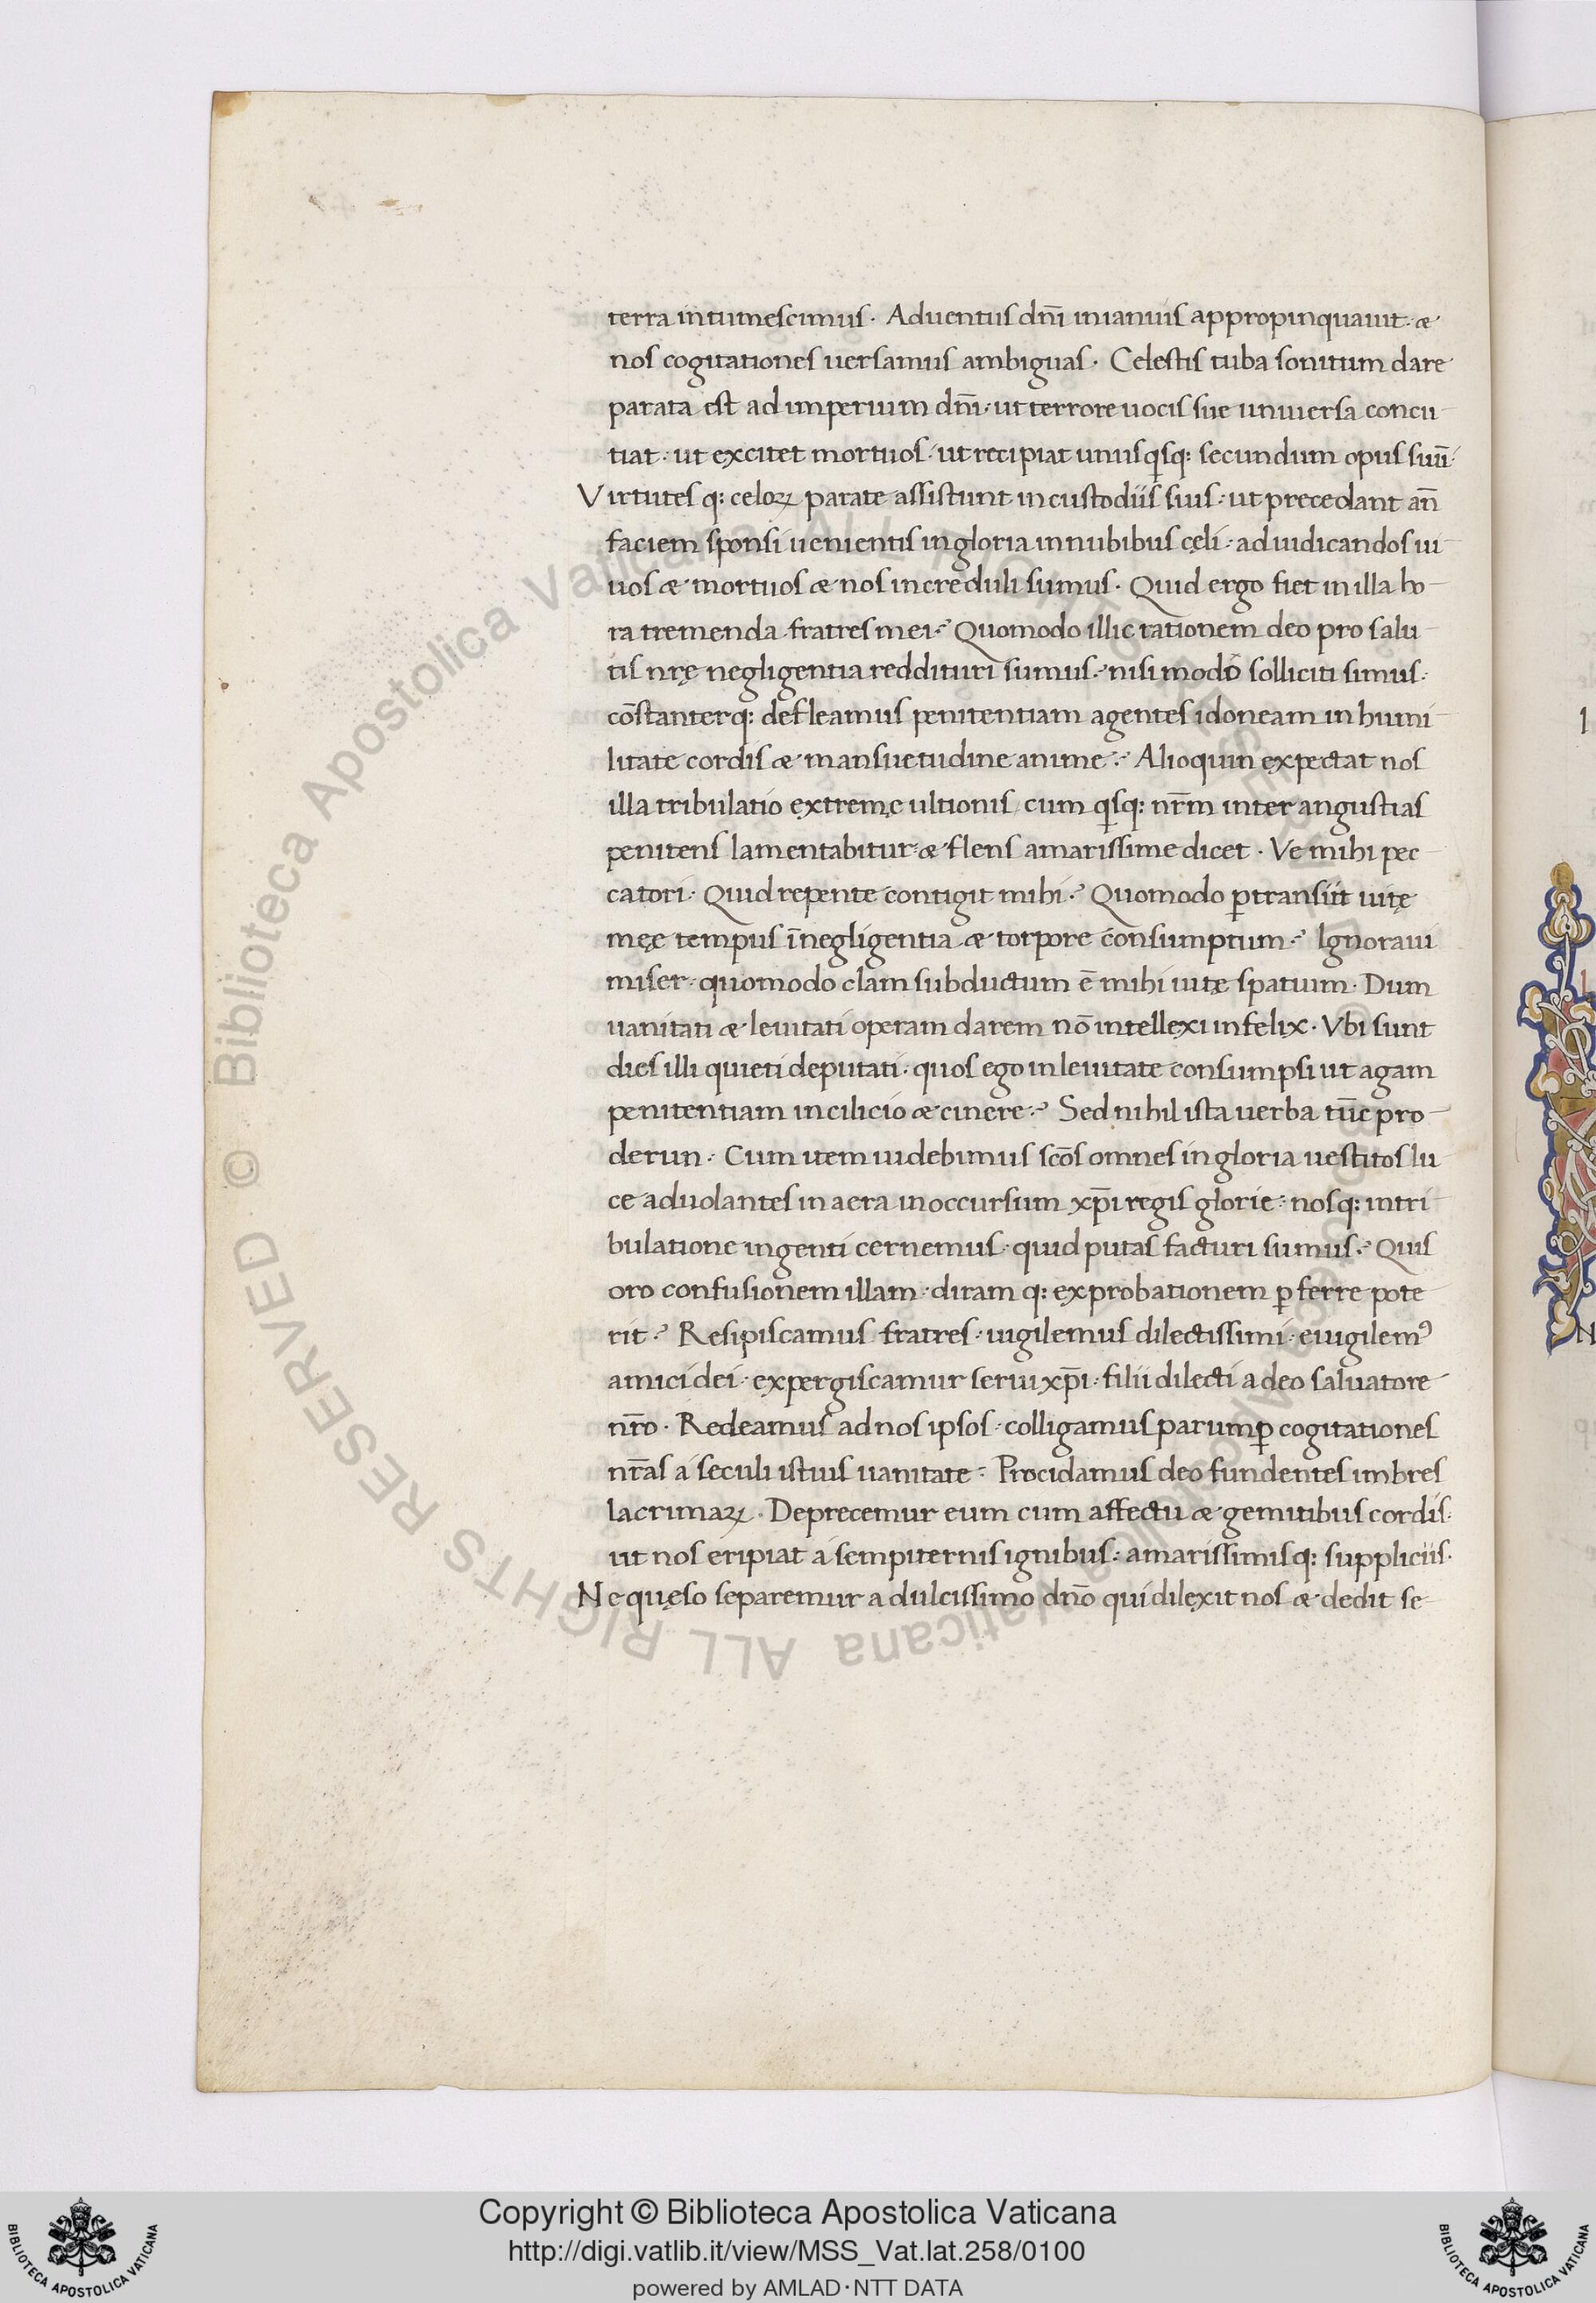 terra intumescimus. Aduentus dn̄i inianuis appropinquauit: &
nos cogitationes uersamus ambiguas. Celestis tuba sonitum dare
parata est ad imperium dn̄i: ut terrore uocis sue uniuersa concu
tiat: ut excitet mortuos: ut recipiat unusqsq: secundum opus suū.
Virtutes q: celoꝝ parate assistunt in custodiis suis: ut precedant an̄
faciem sponsi uenientis in gloria in nubibus cęli: ad iudicandos ui
uos & mortuos & nos increduli sumus. Quid ergo fiet in illa ho
ra tremenda fratres mei? Quomodo illic rationem deo pro salu
tis nrę negligentia reddituri sumus? nisi modo solliciti simus:
cōstanterq: defleamus penitentiam agentes idoneam in humi
litate cordis & mansuetudine anime? Alioquin expectat nos
illa tribulatio extremę ultionis cum qsq: nr̄m inter angustias
penitens lamentabitur: & flens amarissime dicet. Ve mihi pec
catori. Quid repente contigit mihi? Quomodo ꝑtransiit uitę
męe tempus ī negligentia & torpore consumptum? Ignoraui
miser: quomodo clam subductum ē mihi uitę spatium. Dum
uanitati & leuitati operam darem nō intellexi infelix. Vbi sunt
dies illi quieti deputati: quos ego in leuitate consumpsi ut agam
penitentiam in cilicio & cinere? Sed nihil ista uerba tūc pro
derun. Cum item uidebimus scōs omnes in gloria uestitos lu
ce aduolantes in aera in occursum xp̄i regis glorie: nosq: in tri
bulatione ingenti cernemus: quid putas facturi sumus? Quis
oro confusionem illam: diram q: exprobationem ꝑferre pote
rit? Resipiscamus fratres: uigilemus dilectissimi: euigilemꝰ
amici dei: expergiscamur serui xp̄i: filii dilecti a deo saluatore
nr̄o. Redeamus ad nos ipsos: colligamus parumꝑ cogitationes
nr̄as a seculi istius uanitate: Procidamus deo fundentes imbres
lacrimaꝝ. Deprecemur eum cum affectu & gemitibus cordis:
ut nos eripiat a sempiternis ignibus: amarissimisq: suppliciis.
Ne quęso separemur a dulcissimo dn̄o qui dilexit nos & dedit se
© Biblioteca Apostolica Vaticana ALL RIGHTS RESERVED
© Biblioteca Apostolica Vaticana ALL RIGHTS RESERVED
Copyright © Biblioteca Apostolica Vaticana
http://digi.vatlib.it/view/MSS_Vat.lat.258/0100
powered by AMLAD·NTT DATA
BIBLIOTECA APOSTOLICA VATICANA
BIBLIOTECA APOSTOLICA VATICANA